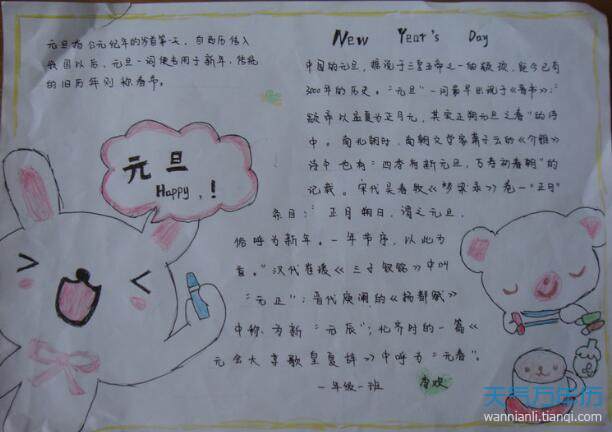 元旦为公元纪年的岁首第一天，自西历传入
我国以后，元旦一词便专用于新年，传统
的旧历年则称春节。
New Year's Day
中国的元旦，据说于三皇五帝之一的颛顼，距今已有
3000年的历史。"元旦"一词最早出现于《晋书》：
"颛帝以孟夏为正月元，其实正朔元旦之春"的诗
中。南北朝时，南朝文学家萧子云的《介雅》
诗中也有"四季有新元旦，万寿初春朝"的
记载。宋代吴自牧《梦粱录》卷一"正月"
条目："正月朔日，谓之元旦，
俗呼为新年。一年节序，以此为
首。"汉代崔瑗《三子钗铭》中叫
"元正"；晋代庾阐的《扬都赋》
中称为新"元辰"；北齐时的一篇《
元会大享歌皇夏辞》中呼为"元春"。
一年级一班
元旦
Happy，！
天气万年历
wannianli.tianqi.com